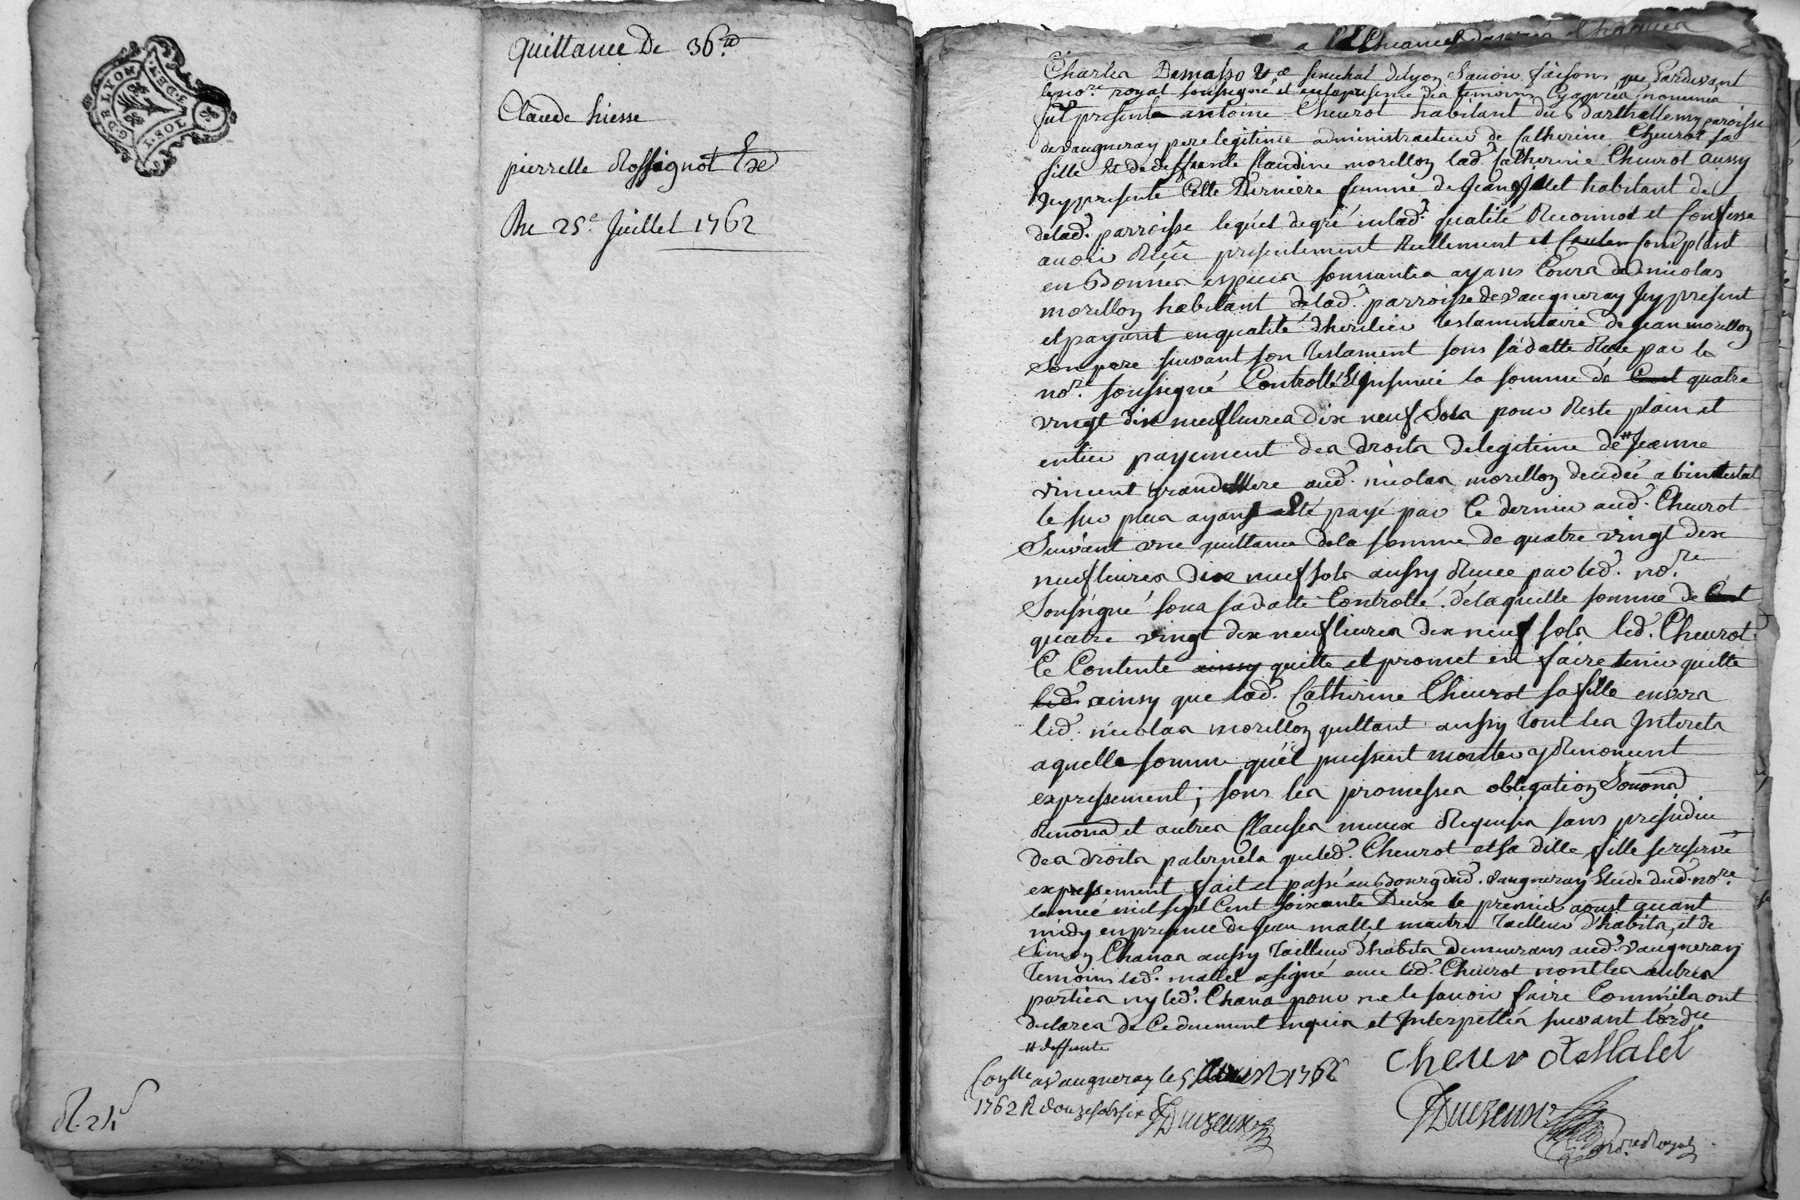 G. DE LYON
1 SOL
Quillance De 36.tt
Claude hiesse
pierrette Rossignol
Du 25.e Juillet 1762
R. 24s
Charles Demasso &.a senechal delyon Savoir faisons que Pardevant
le no.re royal soussigné et en la presence des temoins Cy apres nommés
fut present antoine Cheurot habitant du Barthellemy paroisse
de vaugneray pere legitime administrateur de Catherine Cheurot sa
fille et de deffunte Claudine morellon lad.e Catherine Cheurot aussy
Jcy presente Cette Derniere femme de Jean habitant de
delad.e parroisse lequel de gré en lad.e qualité Reconnoit et Confesse
avoir Reçu presentement Reellement et Comptant
en Bonnes especes sonnantes ayans Cours de nicolas
morellon habitant delad.e parroisse de vaugneray Jcy present
et payant en qualité dheritier testamentaire de Jean morellon
Son pere suivant son testament sous sa datte Reçu par le
no.re soussigné Controllé & Jnsinué la somme de Cent quatre
vingt dix neuf livres dix neuf Sols pour Reste plain et
entier payement des droits delegitime de # Jeanne
vincent grand Mere aud. nicolas morellon decedée abintestat
le sur plus ayans eté payé par Ce dernier aud. Cheurot
Suivant une quittance dela somme de quatre vingt dix
neuf livres dix neuf sols aussy Reçue par led. no.re
Soussigné sous sa datte Controllé. delaquelle somme de Cent
quatre vingt dix neuf livres dix neuf sols led. Cheurot
Ce Contente ainsy quitte et promet en faire tenir quitte
led. ainsy que lad. Catherine Cheurot sa fille envers
led. nicolas morellon quittant aussy tout les Jnterets
aquelle somme qu'il puissent monter y Renoncent
expressement; sous les promesses obligation Soumōn
Renonōn et autres Clauses mieux Requises sans prejudice
des droits paternels que led. Cheurot et sa ditte fille se reserve
expressement fait et passé au Bourg dud. vaugneray Etude dud. no.re
lannée mil sept Cent soixante Deux le premier aoust avant
midy en presence de Jean mallet maitre Tailleur d'habits, et de
Simon Chanas aussy Tailleur d'habits demeurans aud. vaugneray
temoins led. mallet a signé avec led. Cheurot non les autres
parties ny led. Chana pour ne le savoir faire Comm'ils ont
declarés de Ce duement enquis et Jnterpellés suivant l'ordce
# deffunte
Cheurot Malet
Con.lle a vaugneray le 5 aoust 1762
1762 R douze sols six
Duvzeux
Duvzeux
no.re Royal